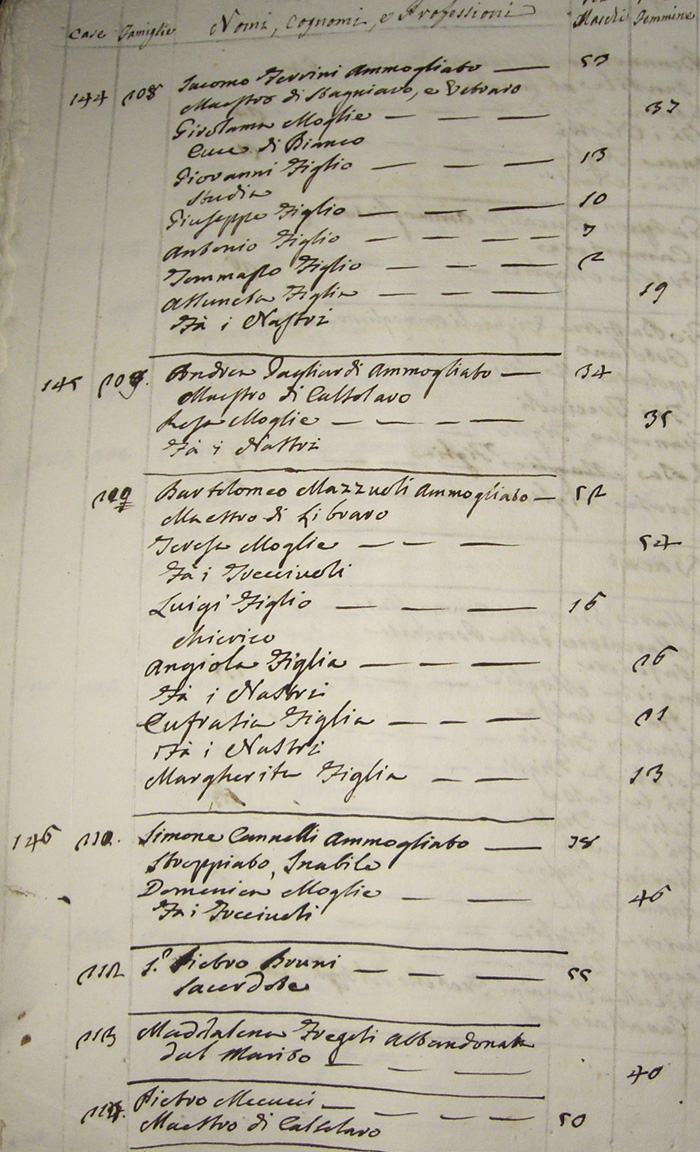 Case Famiglie Nomi, Cognomi, e Professioni Maschi Femmine
144 108 Iacomo Terrini Ammogliato — 53
Maestro di Stagniaro, e Vetraro
Girolama Moglie — — — 37
Cuce di Bianco
Giovanni Figlio — — — 13
Studia
Giuseppe Figlio — — — 10
Antonio Figlio — — — 7
Tommaso Figlio — — — 2
Assunta Figlia — — — 19
Fà i Nastri
145 109. Andrea Pagliardi Ammogliato — 34
Maestro di Calzolaro
Rosa Moglie — — — — 35
Fà i Nastri
Bartolomeo Mazzuoli Ammogliato — 52
Maestro di Libraro
Teresa Moglie — — — 54
Fà i Trecciuoli
Luigi Figlio — — — 16
Chierico
Angiola Figlia — — — 16
Fà i Nastri
Eufrasia Figlia — — — 11
Fà i Nastri
Margherita Figlia — — 13
146 110. Simone Cannelli Ammogliato — 38
Stroppiato, Inabile
Domenica Moglie — — — 46
Fà i Trecciuoli
112 S.r Pietro Bruni — — — 55
Sacerdote
113 Maddalena Fregoli Abbandonata
dal Marito — — — 40
114. Pietro Mecucci — — — —
Maestro di Calzolaro 50